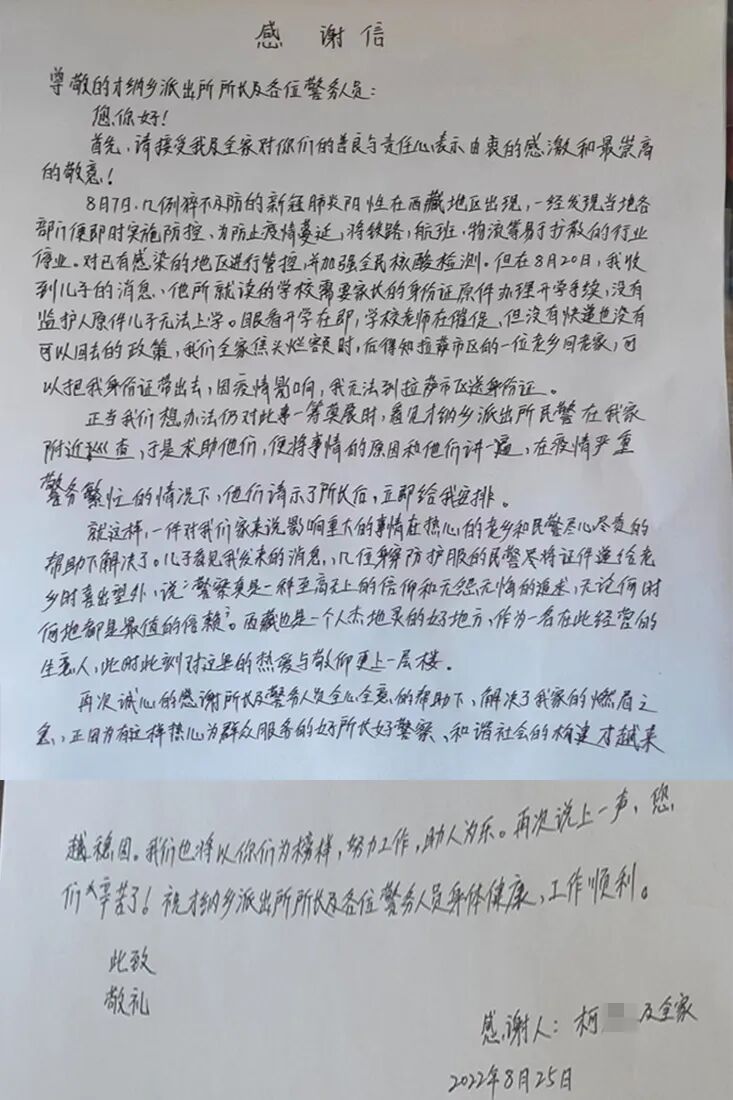 感谢信
尊敬的才纳乡派出所所长及各位警务人员：
您你好！
首先，请接受我及全家对你们的善良与责任心表示由衷的感激和最崇高
的敬意！
8月7日，几例猝不及防的新冠肺炎阳性在西藏地区出现，一经发现当地各
部门便即时实施防控、为防止疫情蔓延，将铁路，航班、物流等易于扩散的行业
停业。对已有感染的地区进行管控，并加强全民核酸检测。但在8月20日，我收
到儿子的消息、他所就读的学校需要家长的身份证原件办理开学手续，没有
监护人原件儿子无法上学。眼看开学在即，学校老师在催促，但没有快递也没有
可以回去的政策，我们全家焦头烂额时，后得知拉萨市区的一位老乡回老家，可
以把我身份证带出去，因疫情影响，我无法到拉萨市区送身份证。
正当我们想办法仍对此事一筹莫展时，看见才纳乡派出所民警在我家
附近巡查，于是求助他们，便将事情的原因和他们讲一遍，在疫情严重
警务繁忙的情况下，他们请示了所长后，立即给我安排。
就这样，一件对我们家来说影响重大的事情在热心的老乡和民警尽心尽责的
帮助下解决了。儿子看见我发来的消息、几位身穿防护服的民警尽将证件递给老
乡时喜出望外，说："警察真是一种至高无上的信仰和无怨无悔的追求，无论何时
何地都是最值的信赖"。西藏也是一个人杰地灵的好地方，作为一名在此经营的
生意人，此时此刻对这里的热爱与敬仰更上一层楼。
再次诚心的感谢所长及警务人员全心全意的帮助下、解决了我家的燃眉之
急，正因为有这样热心为群众服务的好所长好警察、和谐社会的构建才越来
越稳固。我们也将以你们为榜样，努力工作，助人为乐。再次说上一声，您
们辛苦了！祝才纳乡派出所所长及各位警务人员身体健康、工作顺利。
此致
敬礼
感谢人：柯 及全家
2022年8月25日